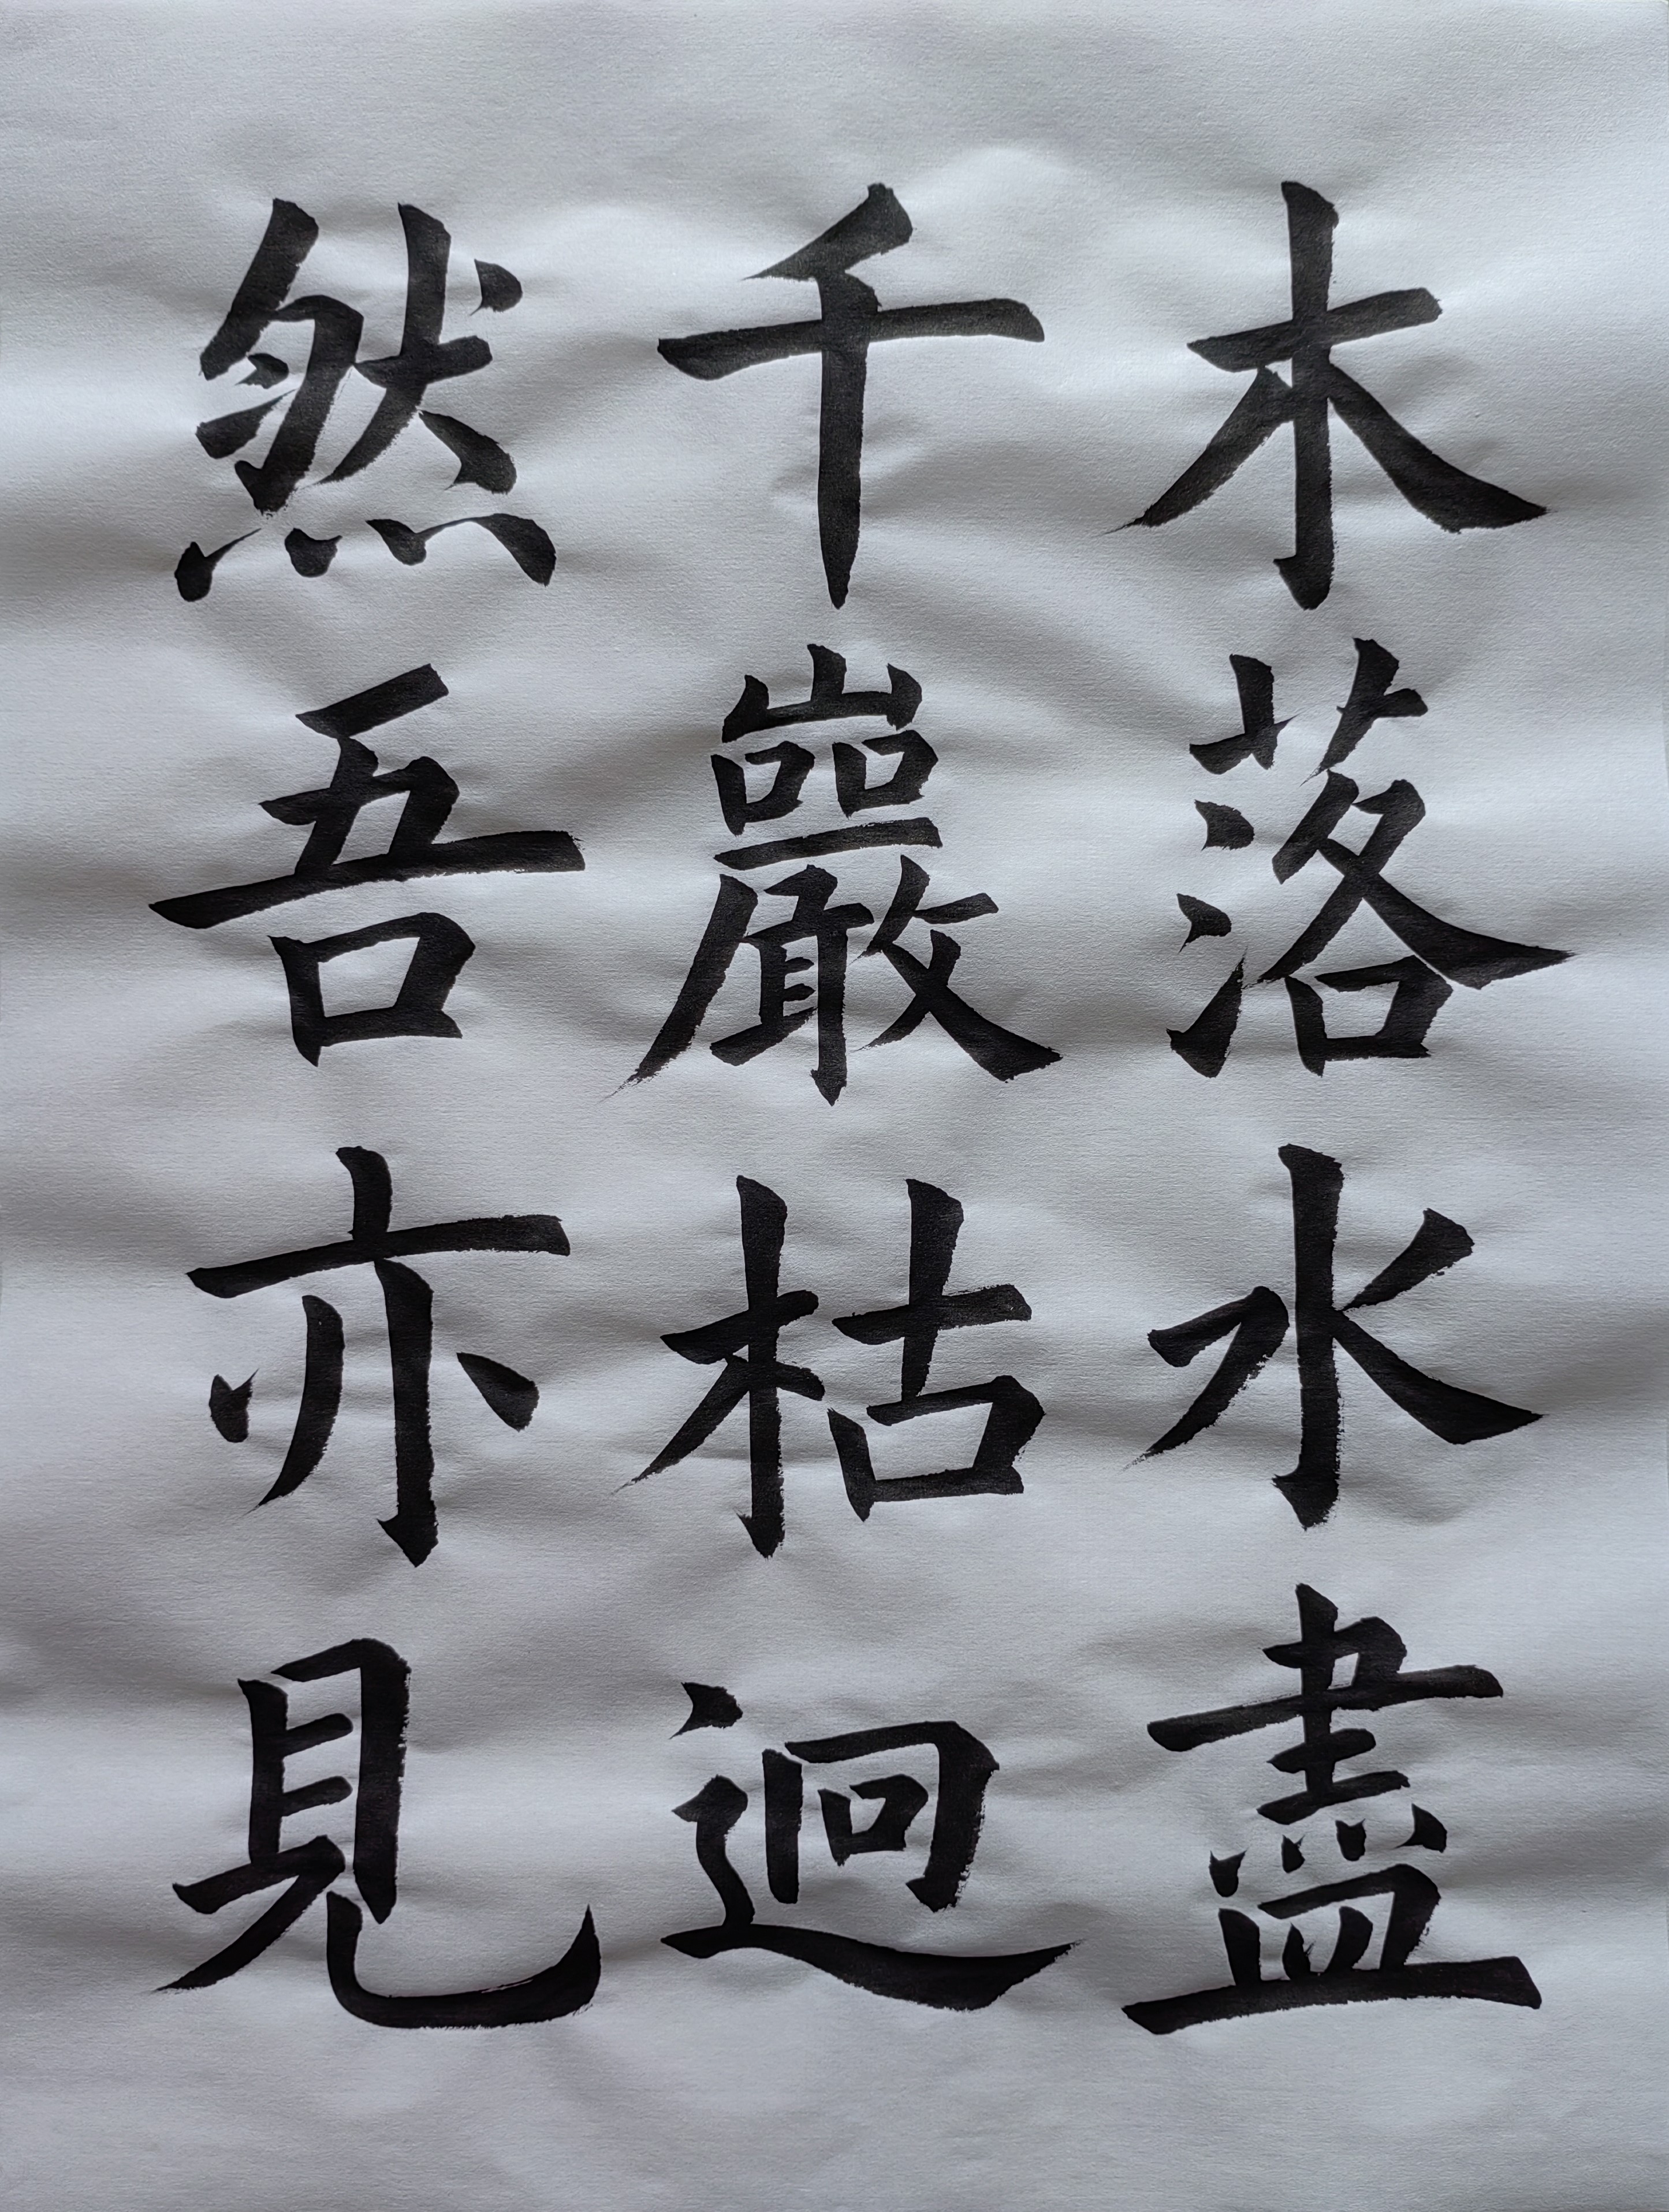 木落水盡
千巖枯迥
然吾亦見